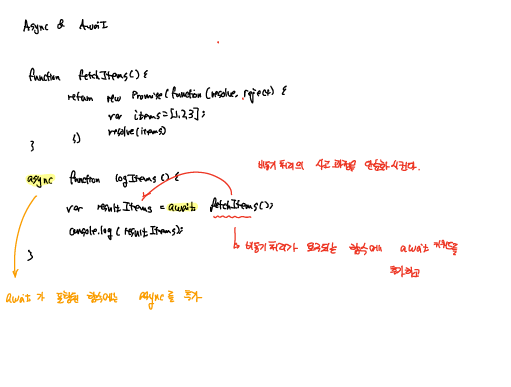 Async & Await
function fetchItems() {
return new Promise(function(resolve, reject) {
var items = [1,2,3];
resolve(items)
})
}
async function logItems() {
비동기 처리의 사고 과정을 단순화 시킨다.
var resultItems = await fetchItems();
console.log(resultItems);
비동기 처리가 요구되는 함수에 await 키워드를
추가하고
}
await가 포함된 함수에는 async를 추가